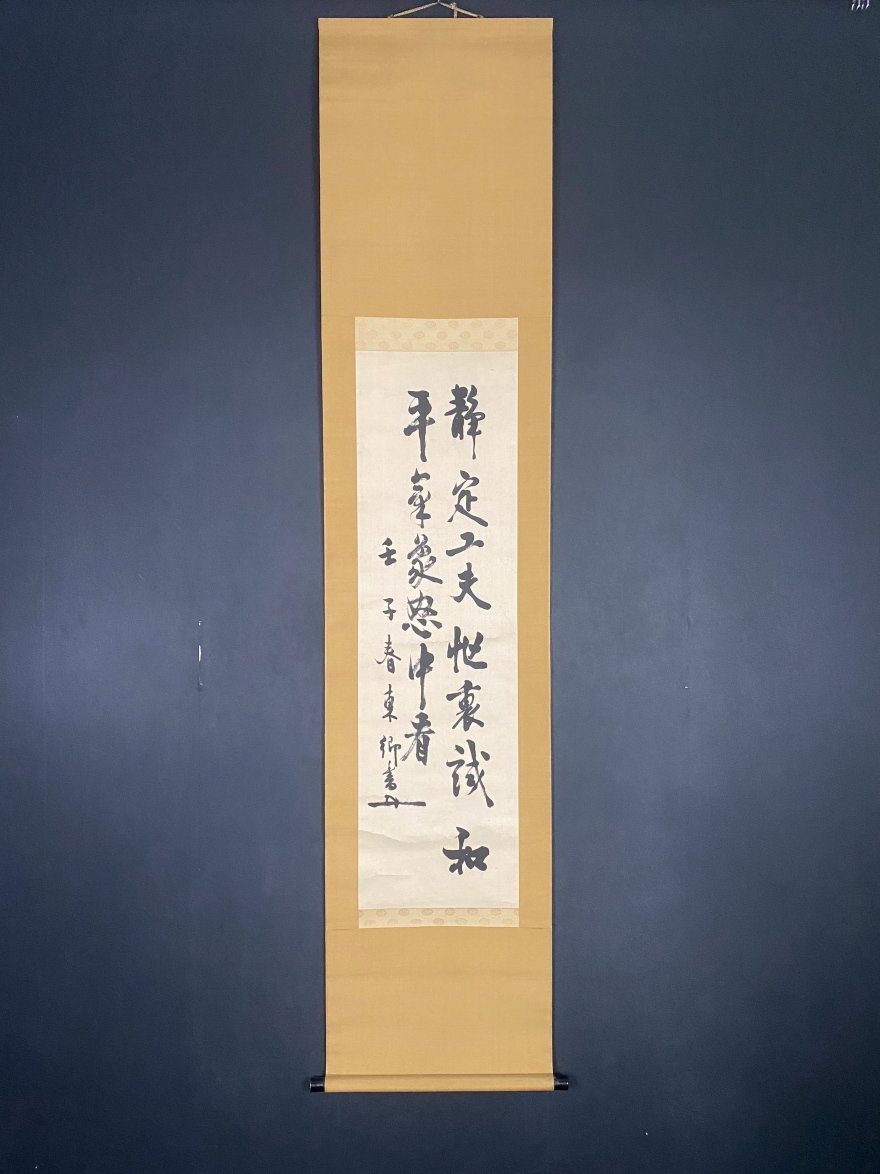 静定工夫忙裏試和
平氣象怒中看
壬子春東郷書